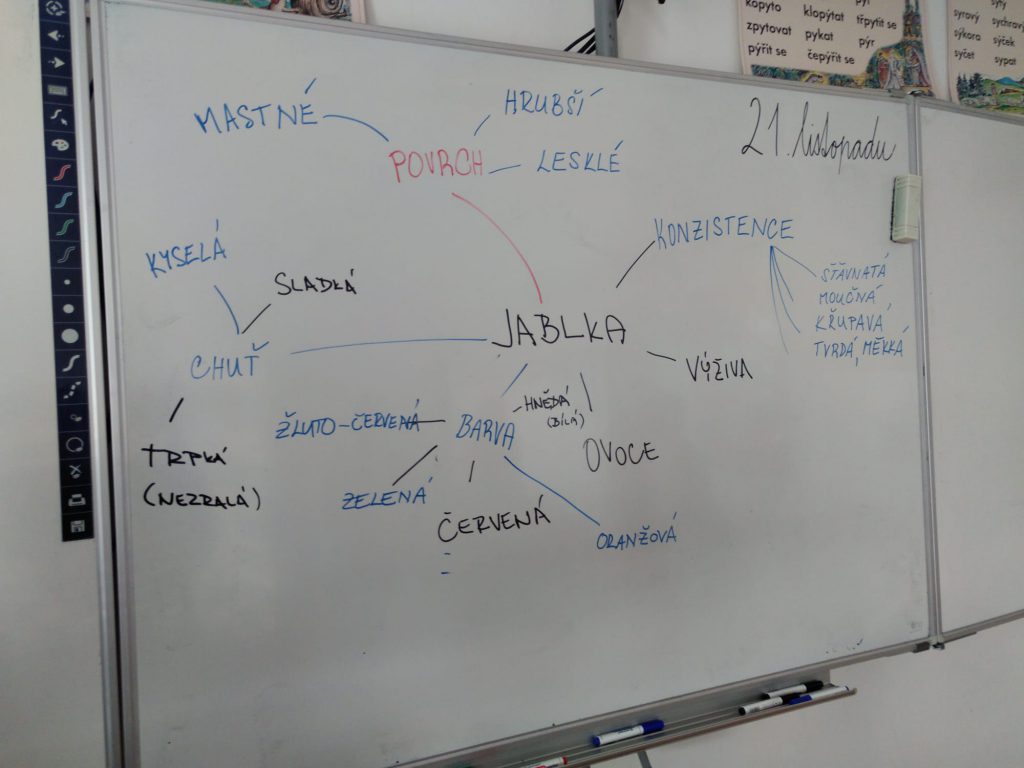 kopyto klopýtat pýr třpytit se
zpytovat pykat
pýřit se čepýřit se pýr
sytý
syrový sychravý
sýkora sýček
syčet sypat
21. listopadu
MASTNÉ
HRUBŠÍ
POVRCH
LESKLÉ
KONZISTENCE
ŠŤÁVNATÁ
MOUČNÁ,
KŘUPAVÁ
TVRDÁ, MĚKKÁ
KYSELÁ
SLADKÁ
CHUŤ
TRPKÁ
(NEZRALÁ)
JABLKA
VÝŽIVA
HNĚDÁ
(BÍLÁ)
ŽLUTO-ČERVENÁ
BARVA
OVOCE
ZELENÁ
ČERVENÁ
ORANŽOVÁ